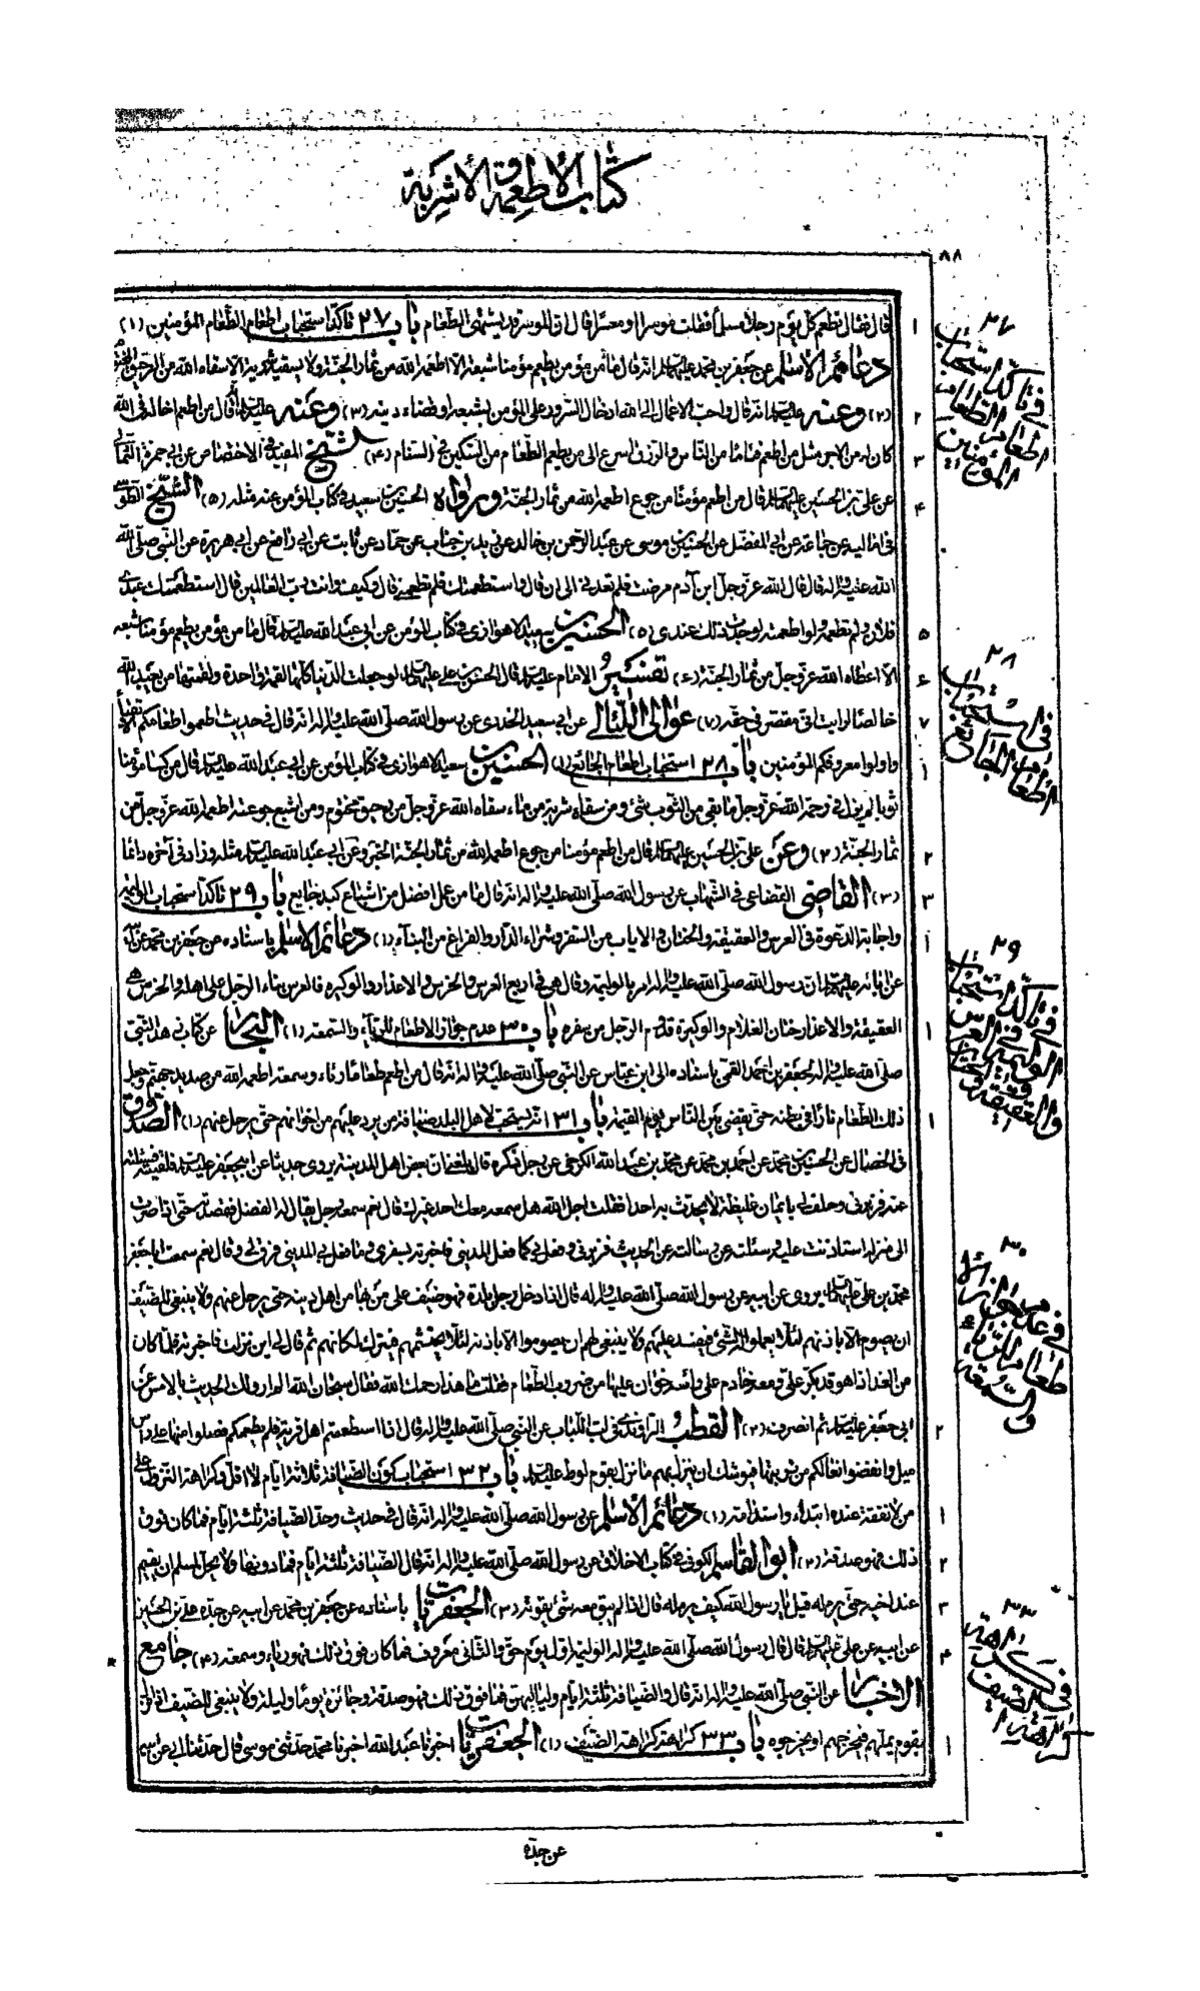 كتاب الأطعمة والأشربة
٨٨
قال فقال تطعم كل يوم رجلا مسلما فقلت موسرا او معسرا قال ان الموسر قد يشتهى الطعام باب ٢٧ تأكد استحباب اطعام الطعام المؤمنين (١)
دعائم الاسلام عن جعفر بن محمد عليهما السلام انه قال ما من مؤمن يطعم مؤمنا شبعه الا اطعمه الله من ثمار الجنة ولا يسقيه شربة الا سقاه الله من الرحيق المختوم
(٢) وعنه عليه السلام انه قال واحب الاعمال الى الله ادخال السرور على المؤمن بشبعه او قضاء دينه (٣) وعنه عليه السلام انه قال من اطعم اخا له فى الله
كان له من الاجر مثل من اطعم فئاما من الناس والرزق اسرع الى من يطعم الطعام من السكين فى السنام (٤) الشيخ المفيد فى الاختصاص عن ابى حمزة الثمالى
عن على بن الحسين عليهما السلام قال من اطعم مؤمنا من جوع اطعمه الله من ثمار الجنة ورواه الحسين بن سعيد فى كتاب المؤمن عنه مثله (٥) الشيخ الطوسى
فى اماليه عن جماعة عن ابى المفضل عن الحسين بن موسى عن عبد الرحمن بن خالد عن زيد بن حباب عن حماد عن ثابت عن ابى رافع عن ابى هريرة عن النبى صلى الله
الله عليه واله قال قال الله عز وجل ابن آدم مرضت فلم تعدنى الى ان قال واستطعمتك فلم تطعمنى قال وكيف وانت رب العالمين قال استطعمك عبدى
فلان ولم تطعمه ولو اطعمته لوجدت ذلك عندى (٥) الحسين بن سعيد الاهوازى فى كتاب المؤمن عن ابى عبد الله عليه السلام قال ما من مؤمن يطعم مؤمنا شبعه
الا اعطاه الله عز وجل من ثمار الجنة (٤) تفسير الامام عليه السلام قال الحسن بن على عليهما السلام لو جعلت الدنيا كلها لقمة واحدة ولقمتها من يعبد الله
خالصا لرايت انى مقصر فى حقه (٧) عوالى اللئالى عن ابى سعيد الخدرى عن رسول الله صلى الله عليه واله انه قال فى حديث اطعموا طعامكم الاتقياء
واولوا معروفكم المؤمنين باب ٢٨ استحباب اطعام الجائع (١) الحسين بن سعيد الاهوازى فى كتاب المؤمن عن ابى عبد الله عليه السلام قال من كسا مؤمنا
ثوبا لم يزل فى رحمة الله عز وجل ما بقى من الثوب شئ ومن سقاه شربة من ماء سقاه الله عز وجل من رحيق مختوم ومن اشبع جوعته اطعمه الله عز وجل من
ثمار الجنة (٢) وعن على بن الحسين عليهما السلام قال من اطعم مؤمنا من جوع اطعمه الله من ثمار الجنة الخبر وعن ابى عبد الله عليه السلام مثله وزاد فى آخره دائما
(٣) القاضى القضاعى فى الشهاب عن رسول الله صلى الله عليه واله انه قال ما من عمل افضل من اشباع كبد جايع باب ٢٩ تأكد استحباب الوليمة
واجابة الدعوة فى العرس والعقيقة والختان والاياب من السفر وشراء الدار والفراغ من البناء (١) دعائم الاسلام باسناده عن جعفر بن محمد عن ابيه
عن ابائه عليهم السلام ان رسول الله صلى الله عليه واله امر بالوليمة وقال هى فى اربع العرس والخرس والاعذار والوكيرة فالعرس بناء الرجل على اهله والخرس هى
العقيقة والاعذار ختان الغلام والوكيرة قدوم الرجل من سفره باب ٣٠ عدم جواز الاطعام للرياء والسمعة (١) البحار عن كتاب زهد النبى
صلى الله عليه واله لجعفر بن احمد القمى باسناده الى ابن عباس عن النبى صلى الله عليه واله انه قال من اطعم طعاما رئاء وسمعة اطعمه الله من صديد جهنم وجعل
ذلك الطعام نارا فى بطنه حتى يقضى بين الناس يوم القيمة باب ٣١ انه يستحب لاهل البلد ضيافة من يرد عليهم من اخوانهم حتى يرحل عنهم (١) الصدوق
فى الخصال عن الحسين بن محمد عن احمد بن محمد عن محمد بن عبد الله الكرخى عن رجل ذكره قال بلغنى ان بعض اهل المدينة يروى حديثا عن ابى جعفر عليه السلام فلقيته فسئلته
عنه فزبرنى وحلف لى بايمان غليظة لا يحدث به احدا فقلت اجل الله هل سمعه معك احد غيرك قال نعم سمعه رجل يقال له الفضل فقصدته حتى اذا صرت
الى منزله استاذنت عليه وسئلته عن الحديث فزبرنى وفعل بى كما فعل المدينى فاخبرته بسفرى وما فعل بى المدينى فرق لى وقال نعم سمعت ابا جعفر
محمد بن على عليهما السلام يروى عن ابيه عن رسول الله صلى الله عليه واله قال اذا دخل رجل بلدة فهو ضيف على من بها من اهل دينه حتى يرحل عنهم ولا ينبغى للضيف
ان يصوم الا باذنهم لئلا يعملوا له الشئ فيفسد عليهم ولا ينبغى لهم ان يصوموا الا باذنه لئلا يحتشمهم فيترك لمكانهم ثم قال لى اين نزلت فاخبرته فلما كان
من الغد اذا هو قد بكر على ومعه خادم على رأسه خوان عليها من ضروب الطعام فقلت ما هذا رحمك الله فقال سبحان الله الم ارو لك الحديث بالامس عن
ابى جعفر عليه السلام ثم انصرف (٢) القطب الراوندى فى لب اللباب عن النبى صلى الله عليه واله قال اذا استطعمتم اهل قرية فلم يطعموكم فصلوا منها على رأس
ميل وانفضوا نعالكم من تربتها فيوشك ان ينزل بهم ما نزل بقوم لوط عليه السلام باب ٣٢ استحباب كون الضيافة ثلاثة ايام لا اقل وكراهة النزول على
من لا نفقة عنده ابتداء واستدامة (١) دعائم الاسلام عن رسول الله صلى الله عليه واله انه قال فى حديث وحد الضيافة ثلثة ايام فما كان فوق
ذلك فهو صدقة (٢) ابو القاسم الكوفى فى كتاب الاخلاق عن رسول الله صلى الله عليه واله انه قال الضيافة ثلثة ايام فما دونها ولا يحل لمسلم ان يقيم
عند اخيه حتى يرمله قيل يا رسول الله كيف يرمله قال اذا لم يبق معه شئ يقوته (٣) الجعفريات باسناده عن جعفر بن محمد عن ابيه عن جده على بن الحسين
عن ابيه عن على عليهم السلام قال قال رسول الله صلى الله عليه واله الوليمة اول يوم حق والثانى معروف فما كان فوق ذلك فهو رياء وسمعة (٤) جامع
الاخبار عن النبى صلى الله عليه واله انه قال والضيافة ثلثة ايام ولياليهن فما فوق ذلك فهو صدقة وجائزة يوما وليلة ولا ينبغى للضيف اذا نزل
بقوم يملهم فيخرجهم او يخرجوه باب ٣٣ كراهة كراهة الضيف (١) الجعفريات اخبرنا عبد الله اخبرنا محمد حدثنى موسى قال حدثنا ابى عن ابيه
عن جده
٢٧
فى تأكد استحباب
اطعام الطعام
المؤمنين
٢٨
فى استحباب
اطعام الجائع
٢٩
فى تأكد استحباب
الوليمة فى العرس
والعقيقة
٣٠
فى عدم جواز
طعام للرياء
والسمعة
٣٣
فى كراهة
كراهة الضيف